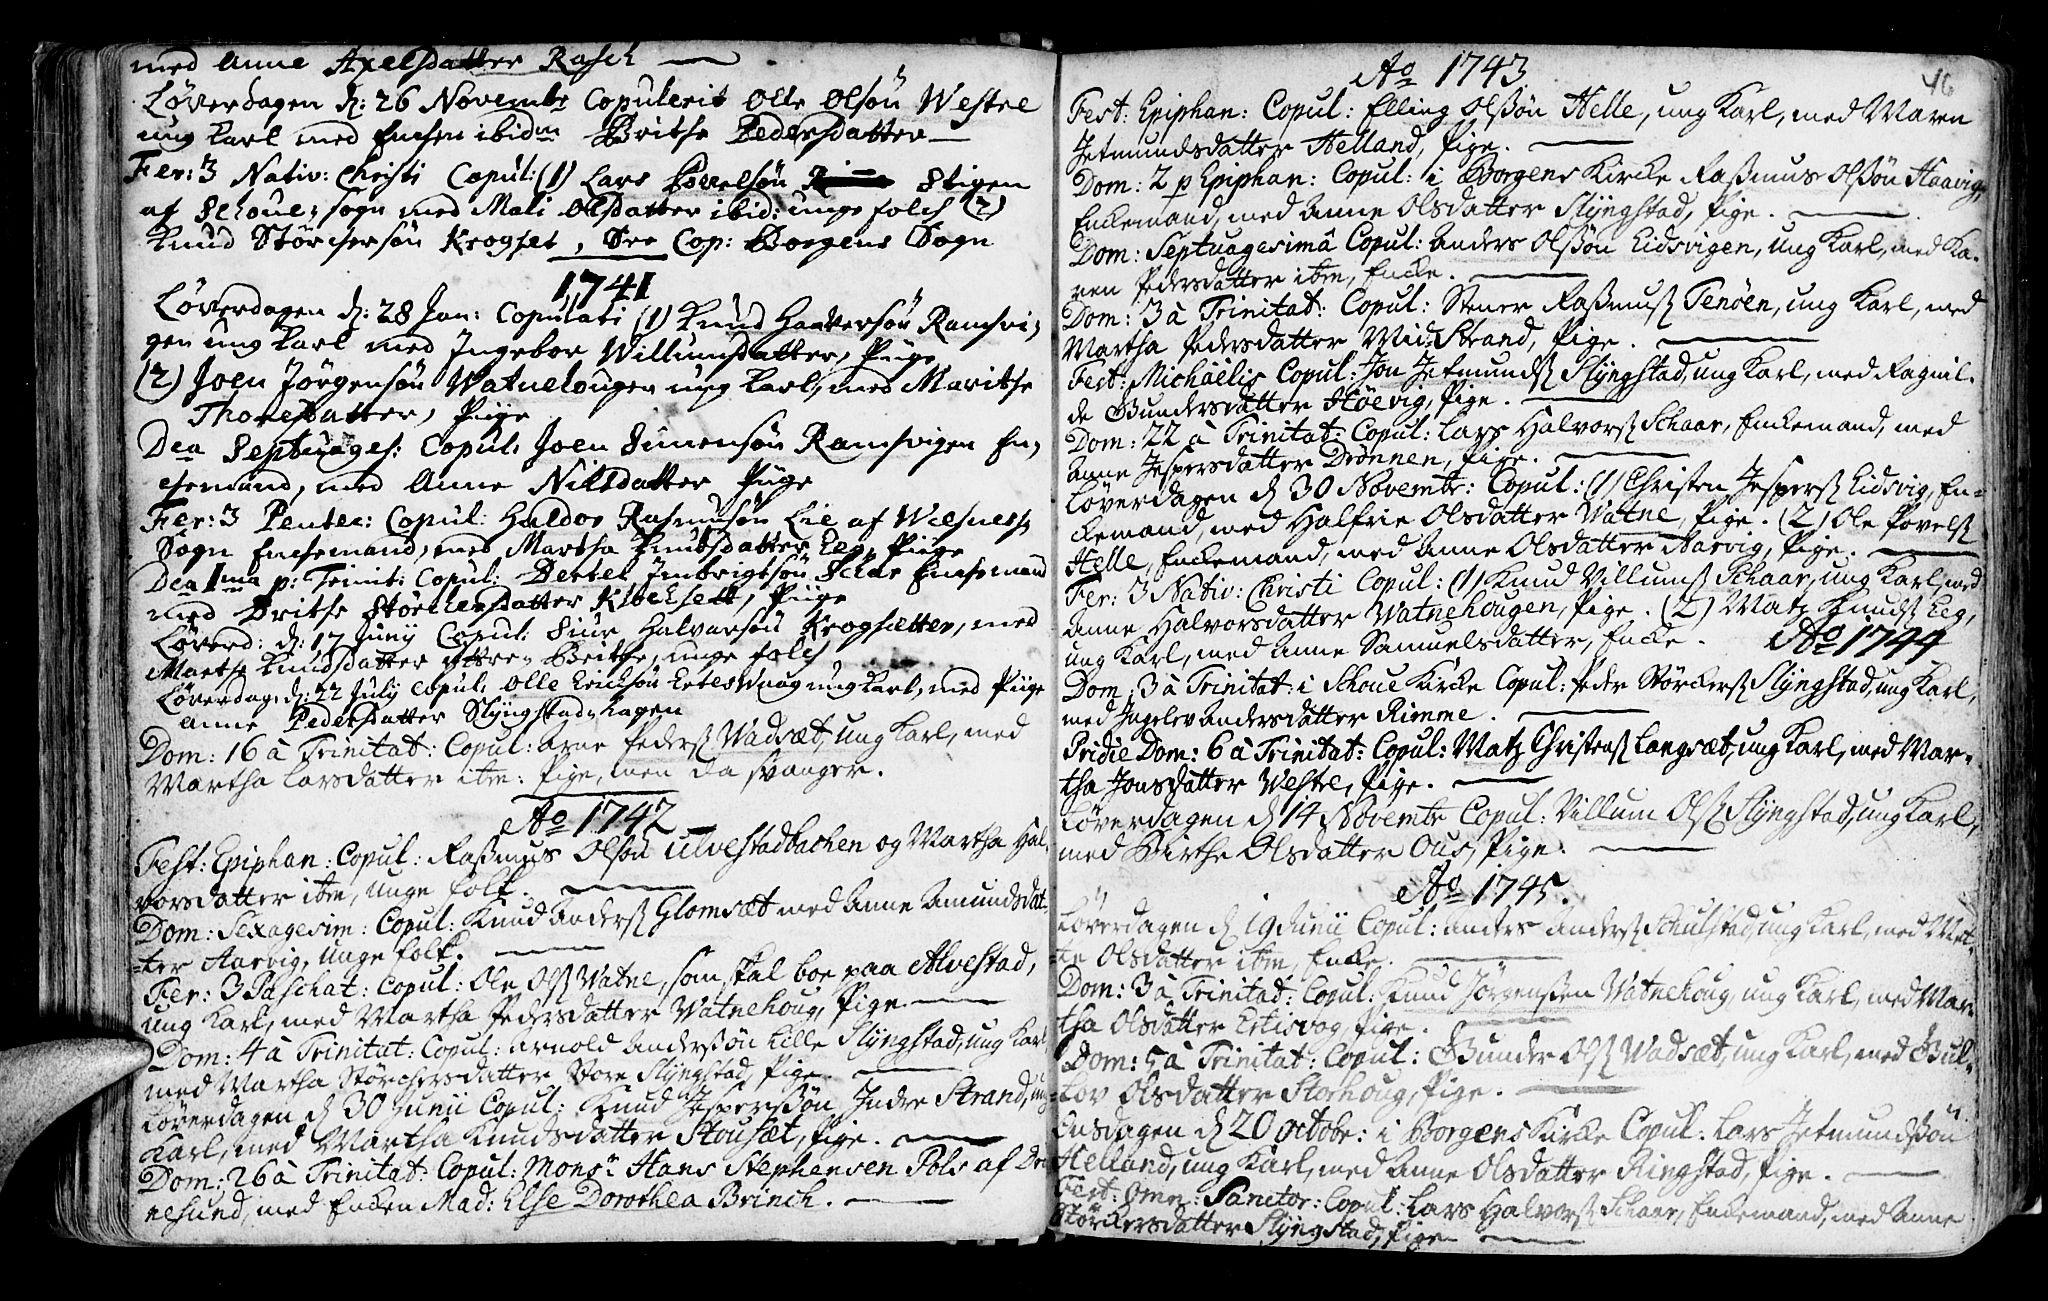 med Anne Axelsdatter Rasch
Løverdagen d: 26 Novembr Copulerit Olle Olsön Westre
ung karl med Encken ibidm Brithe Pedersdatter
Fer: 3 Nativ: Christi Copul: (1) Lars Povelsön Stigen
af Schoue sogn med Mali Olsdatter ibid: unge folch (2)
Knud Störchersön Krogset, See Cop: Borgens Sogn
1741
Løverdagen d: 28 Jan: Copulati (1) Knud Haaversön Ramsvi-
gen ung karl med Ingebor Willumsdatter, Piige
(2) Joen Jørgensön Watnehougen ung karl, med Marithe
Thoresdatter, Piige
Dca Septuages: Copul: Joen Simensön Ramsvigen En-
chemand, med Anne Nilsdatter Piige
Fer: 3 Pentec: Copul: Haldor Rasmusön Lie af Wolsness
Sogn Enchemand, med Martha Knudsdatter Eeg, Piige
Dca 1ma p: Trinit: Copul: Detlef Ingbrigtsön Schar Enchemand
med Brithe Störchersdatter Klochsett, Piige
Løverd: d: 17 Junij Copul: Siur Halvarsön Krogsætter, med
Marthe Knudsdatter ytre Brithe, unge folch
Løverdag: d: 22 July Copul: Olle Erichsön Ertesvaag ung karl, med Piige
Anne Pedersdatter Slyngstadhagen
Dom: 16 à Trinitat: Copul: Arne Peders. Wadsæt, ung Karl, med
Martha Larsdatter ibm: Pige, men da svanger.
Ao 1742
Fest: Epiphan: Copul: Rasmus Olsön Ulvestadbachen og Martha Hal-
vorsdatter ibm, unge folk.
Dom: Sexagesim: Copul: Knud Anders. Glomsæt med Anne Amundsdat-
ter Aarvig, unge folk.
Fer: 3 Paschat: Copul: Ole Ols. Watne, som skal boe paa Alvestad,
ung Karl, med Martha Pedersdatter Watnehoug, Pige.
Dom: 4 à Trinitat: Copul: Arnold Anderssön Lille Slyngstad, ung Karl
med Martha Störchersdatter Store Slyngstad, Pige.
Løverdagen d 30 Junii Copul: Knud Jesperssön Indre Strand, ung
Karl, med Martha Knudsdatter Stousæt, Pige.
Dom: 26 à Trinitat: Copul: Monsr Hans Stephensen Pols af Ve-
nesund, med Enken Mad: Else Dorothea Brinch.
46
Ao 1743
Fest: Epiphan: Copul: Elling Olssön Helle, ung Karl, med Maren
Jetmundsdatter Helland, Pige.
Dom: 2 p Epiphan: Copul: i Borgens Kircke Rasmus Olssön Haavig,
Enckemand, med Anne Olsdatter Slyngstad, Pige.
Dom: Septuagesimâ Copul: Anders Olssön Eidsvigen, ung Karl, med Ka-
ren Pedersdatter ibm, Encke.
Dom: 3 à Trinitat: Copul: Stener Rasmus. Tenöen, ung Karl, med
Martha Pedersdatter Mid Strand, Pige.
Fest: Michaëlis Copul: Jon Jetmunds. Slyngstad, ung Karl, med Ragnil-
de Gundersdatter Höevig, Pige.
Dom: 22 à Trinitat: Copul: Lars Halvors. Schaar, Enckemand, med
Anne Jespersdatter Drönnen, Pige.
Løverdagen d 30 Novembr: Copul: (1) Christen Jespers. Eidsvig, En-
ckemand, med Halfrie Olsdatter Watne, Pige. (2) Ole Povels.
Helle, Enckemand, med Anne Olsdatter Aarvig, Pige.
Fer: 3 Nativ: Christi Copul: (1) Knud Villums. Schaar, ung Karl, med
Anne Halvorsdatter Watnehougen, Pige. (2) Matz Knuds. Eeg,
ung Karl, med Anne Samuelsdatter, Encke. Ao 1744
Dom: 3 à Trinitat: i Schoue Kircke Copul: Peder Störckers. Slyngstad, ung Karl,
med Ingelev Andersdatter Rimme.
Pridie Dom: 6 à Trinitat: Copul: Matz Christens. Langsæt, ung Karl, med Mar-
tha Jonsdatter Westre, Pige.
Løverdagen d 14 Novembr Copul: Villum Ols. Slyngstad, ung Karl,
med Birthe Olsdatter Ous, Pige.
Ao 1745.
Løverdagen d 19 Junii Copul: Anders Anders. Schulstad, ung Karl, med Met-
te Olsdatter ibm, Encke.
Dom: 3 à Trinitad: Copul: Knud Jörgenssen Watnehoug, ung Karl, med Mar-
tha Olsdatter Ertisvog, Pige.
Dom: 5 à Trinitat: Copul: Gunder Ols. Wadsæt, ung Karl, med Gul-
lov Olsdatter Storhoug, Pige.
Onsdagen d 20 Octobr: i Borgens Kircke Copul: Lars Jetmundssön
Helland, ung Karl, med Anne Olsdatter Ringstad, Pige.
Fest: Omn: Sanctor: Copul: Lars Halvors. Schaar, Enckemand, med Anne
Störckersdatter Slyngstad, Pige